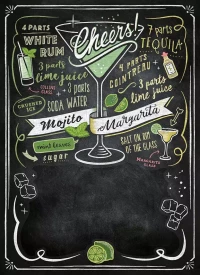 Cheers!
4 PARTS
WHITE
RUM
3 parts
lime juice
COLLINS
GLASS
CRUSHED
ICE
3 PARTS
SODA WATER
Mojito
mint leaves
sugar
7 parts
TEQUILA
4 PARTS
COINTREAU
3 parts
lime juice
Margarita
SALT ON RIM
OF THE GLASS
MARGARITA
GLASS